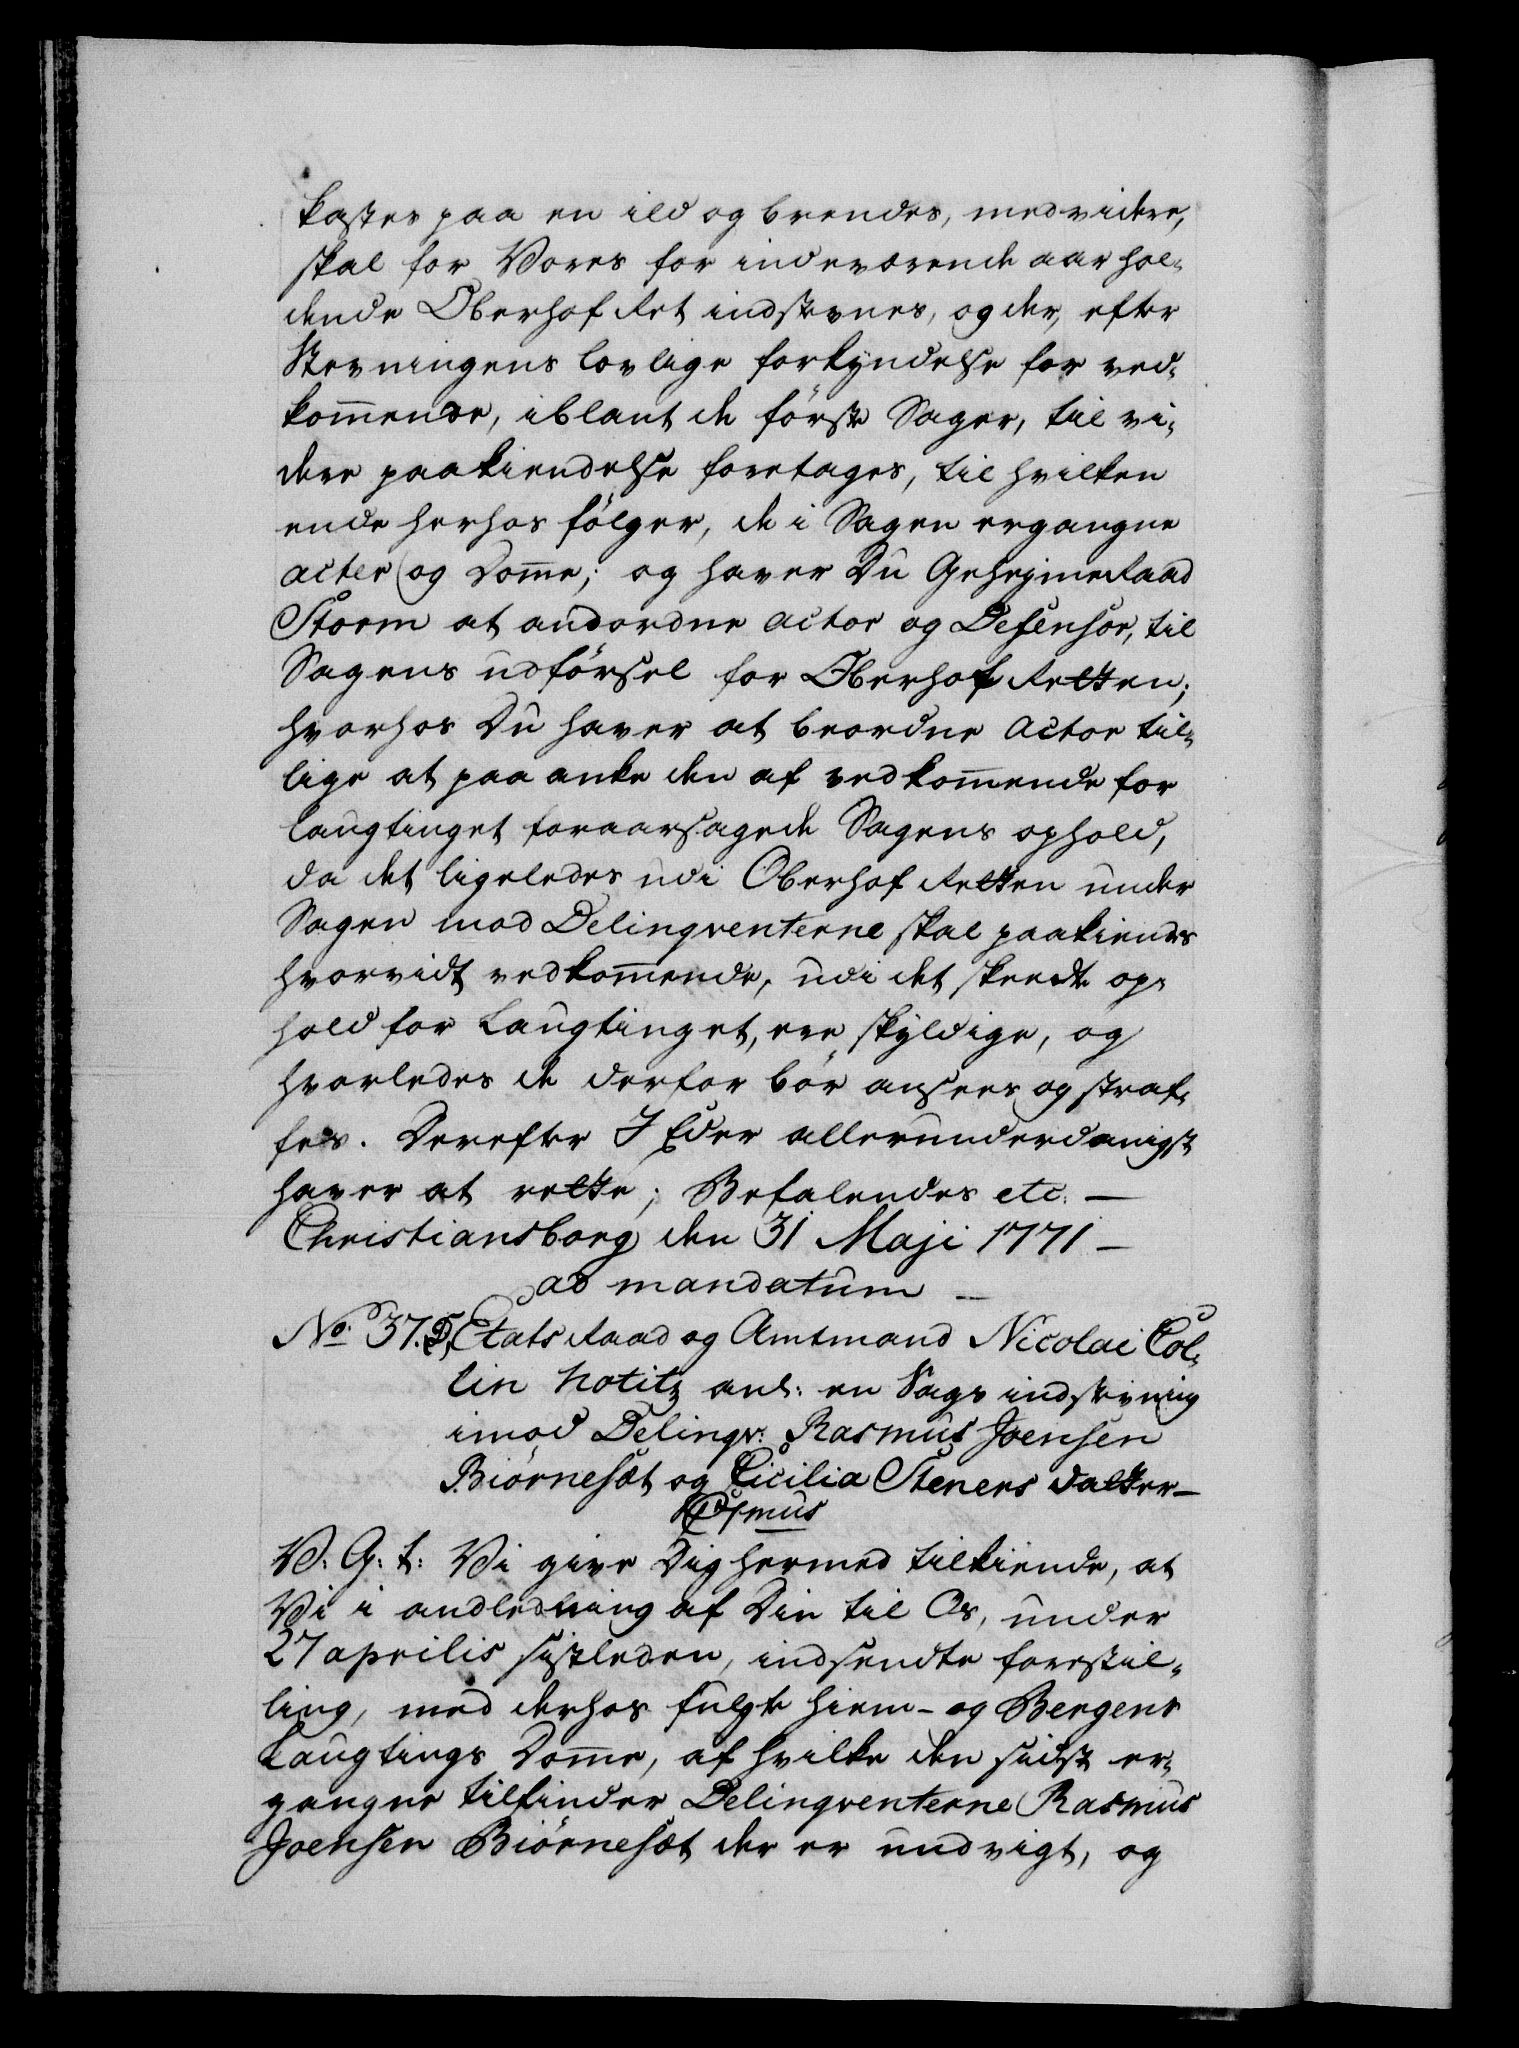 kastes paa en ild og brendes, med videre,
skal for Vores for indeværende aar hol-
dende Oberhof Ret indstevnes, og der, efter
Stevningens lovlige forkyndelse for ved-
kom̄ende, iblant de förste Sager, til vi-
dere paakiendelse foretages, til hvilken
ende herhos fölger, de i Sagen ergangne
acter og Dom̄e; og haver Du Geheime Raad
Storm at andordne actor og Defensor, til
Sagens udförsel for Oberhof Retten;
hvorhos Du haver at beordre actor til-
lige at paa anke den af vedkom̄ende for
laugtinget foraarsagede Sagens ophold,
da det ligeledes udi Oberhof Retten under
Sagen mod Delinqventerne skal paakiendes
hvorvidt vedkom̄ende, udi det skeedte op-
hold for Laugtinget, ere skyldige, og
hvorledes de derfor bör ansees og straf-
fes. Derefter I Eder allerunderdanigst
haver at rette; Befalendes etc. —
Christiansborg den 31 Maji 1771 —
ad mandatum —
No. 37. Etats Raad og Amtmand Nicolai Col-
lin Notitz anl: en Sags indstevning
imod Delinqv: Rasmus Joensen
Biörnesæt og Cicilia Steners datter —
C7mus
V: G: t: Vi give Dig hermed tilkiende, at
Vi i andledning af Din til Os, under
27 aprilis sistleden, indsendte forestil-
ling, med derhos fulgte hiem- og Bergens
Laugtings Dom̄e, af hvilke den sidst er-
gangne tilfinder Delinqventerne Rasmus
Joensen Biörnesæt der er undvigt, og